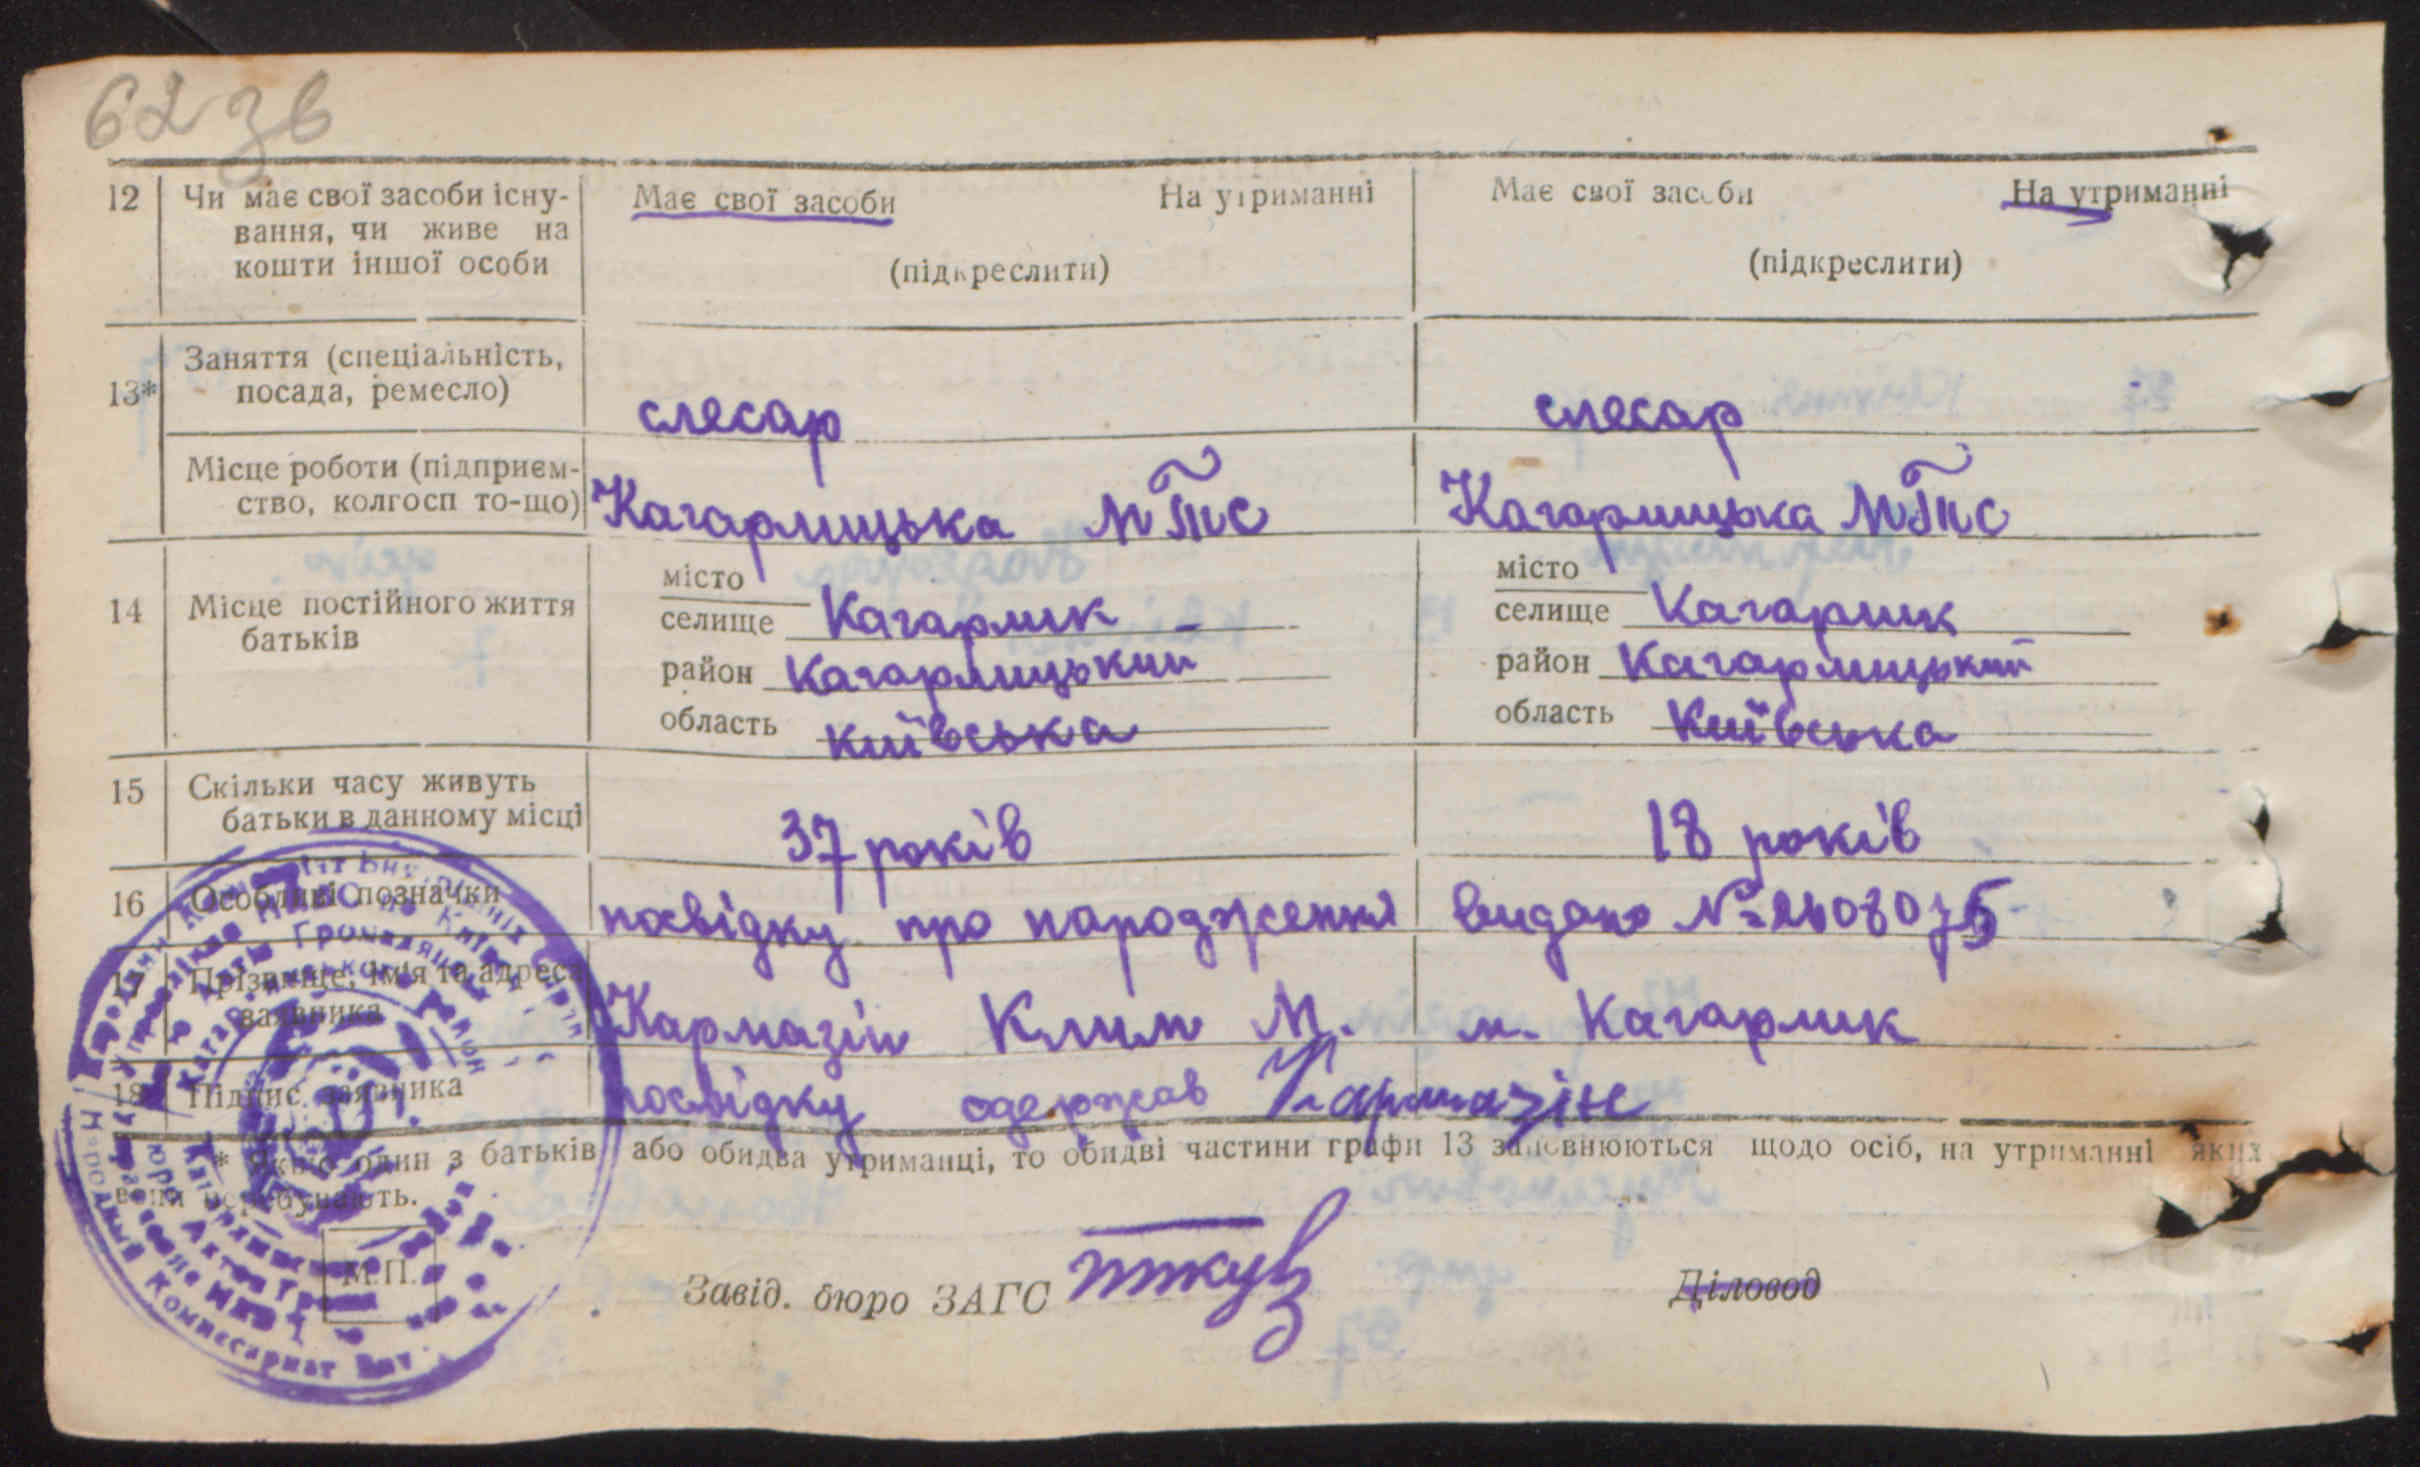 62 зв
12 Чи має свої засоби існу-
вання, чи живе на
кошти іншої особи
Має свої засоби На утриманні
(підкреслити)
Має свої засоби На утриманні
(підкреслити)
13* Заняття (спеціальність,
посада, ремесло)
слесар
слесар
Місце роботи (підприєм-
ство, колгосп то-що)
Кагарлицька МТС
Кагарлицька МТС
14 Місце постійного життя
батьків
місто
селище Кагарлик
район Кагарлицький
область Київська
місто
селище Кагарлик
район Кагарлицький
область Київська
15 Скільки часу живуть
батьки в данному місці
37 років
18 років
16 Особливі позначки
посвідку про народження видано №
17 Прізвище, ім'я та адреса
заявника
Кармазін Клим М. м. Кагарлик
18 Підпис заявника
посвідку одержав Кармазін
* Якщо один з батьків або обидва утриманці, то обидві частини графи 13 заповнюються щодо осіб, на утриманні яких
вони перебувають.
М.П.
Завід. бюро ЗАГС
Діловод